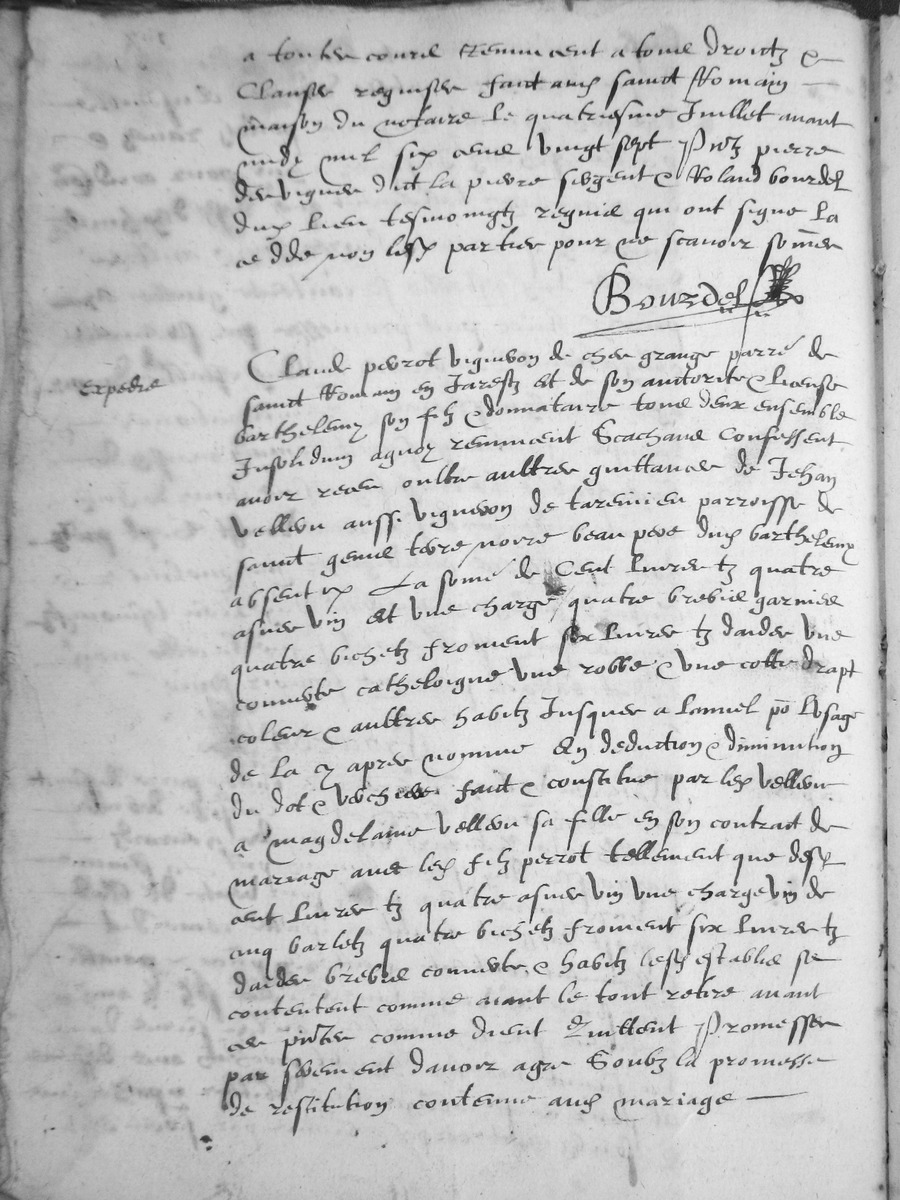 a toutes cours Renuncent a tous droictz &
Clauses requises faict aud sainct Romain
maison du notaire le quatriesme Juillet avant
midy mil six cens vingt sept Pntz pierre
deviguier dict la pierre sergent & Roland bourdel
dud lieu tesmoingtz requis qui ont signe la
cedde non lesd parties pour ne scavoir sommes
Bourdel
Expedie
Claude perrot vigneron de chez grange parre de
sainct Romain en Jarestz et de son auctorite & license
barthelemy son filz & donnataire tous deux ensemble
Insolidum aquoy renuncent Scachans Confessent
avoir receu oultre aultres quittances de Jehan
velleu aussi vigneron de taremien parroisse de
sainct genis terre noire beau pere dud barthelemy
absent La some de Cent livres tz quatre
asnes vin et une charge quatre brebis garnies
quatre bichetz froment six livres tz daides une
couverte catheloigne une robbe & une cotte drapt
coleur & aultres habitz Jusques a lanuel po lusage
de la cy apres nomme En deduction & diminution
du dot & verchiere faict & constitue par led velleu
a magdelaine velleu sa fille en son contract de
mariage avec led filz perrot tellement que desd
cent livres tz quatre asnes vin une charge vin de
cinq barletz quatre bichetz froment six livres tz
daides brebis couverte & habitz lesd establis se
contentent comme aiant le tout retire avant
ces pntes comme dient Quittent Promesses
par serement davoir agre Soubz la promesse
de restitution contenue aud mariage